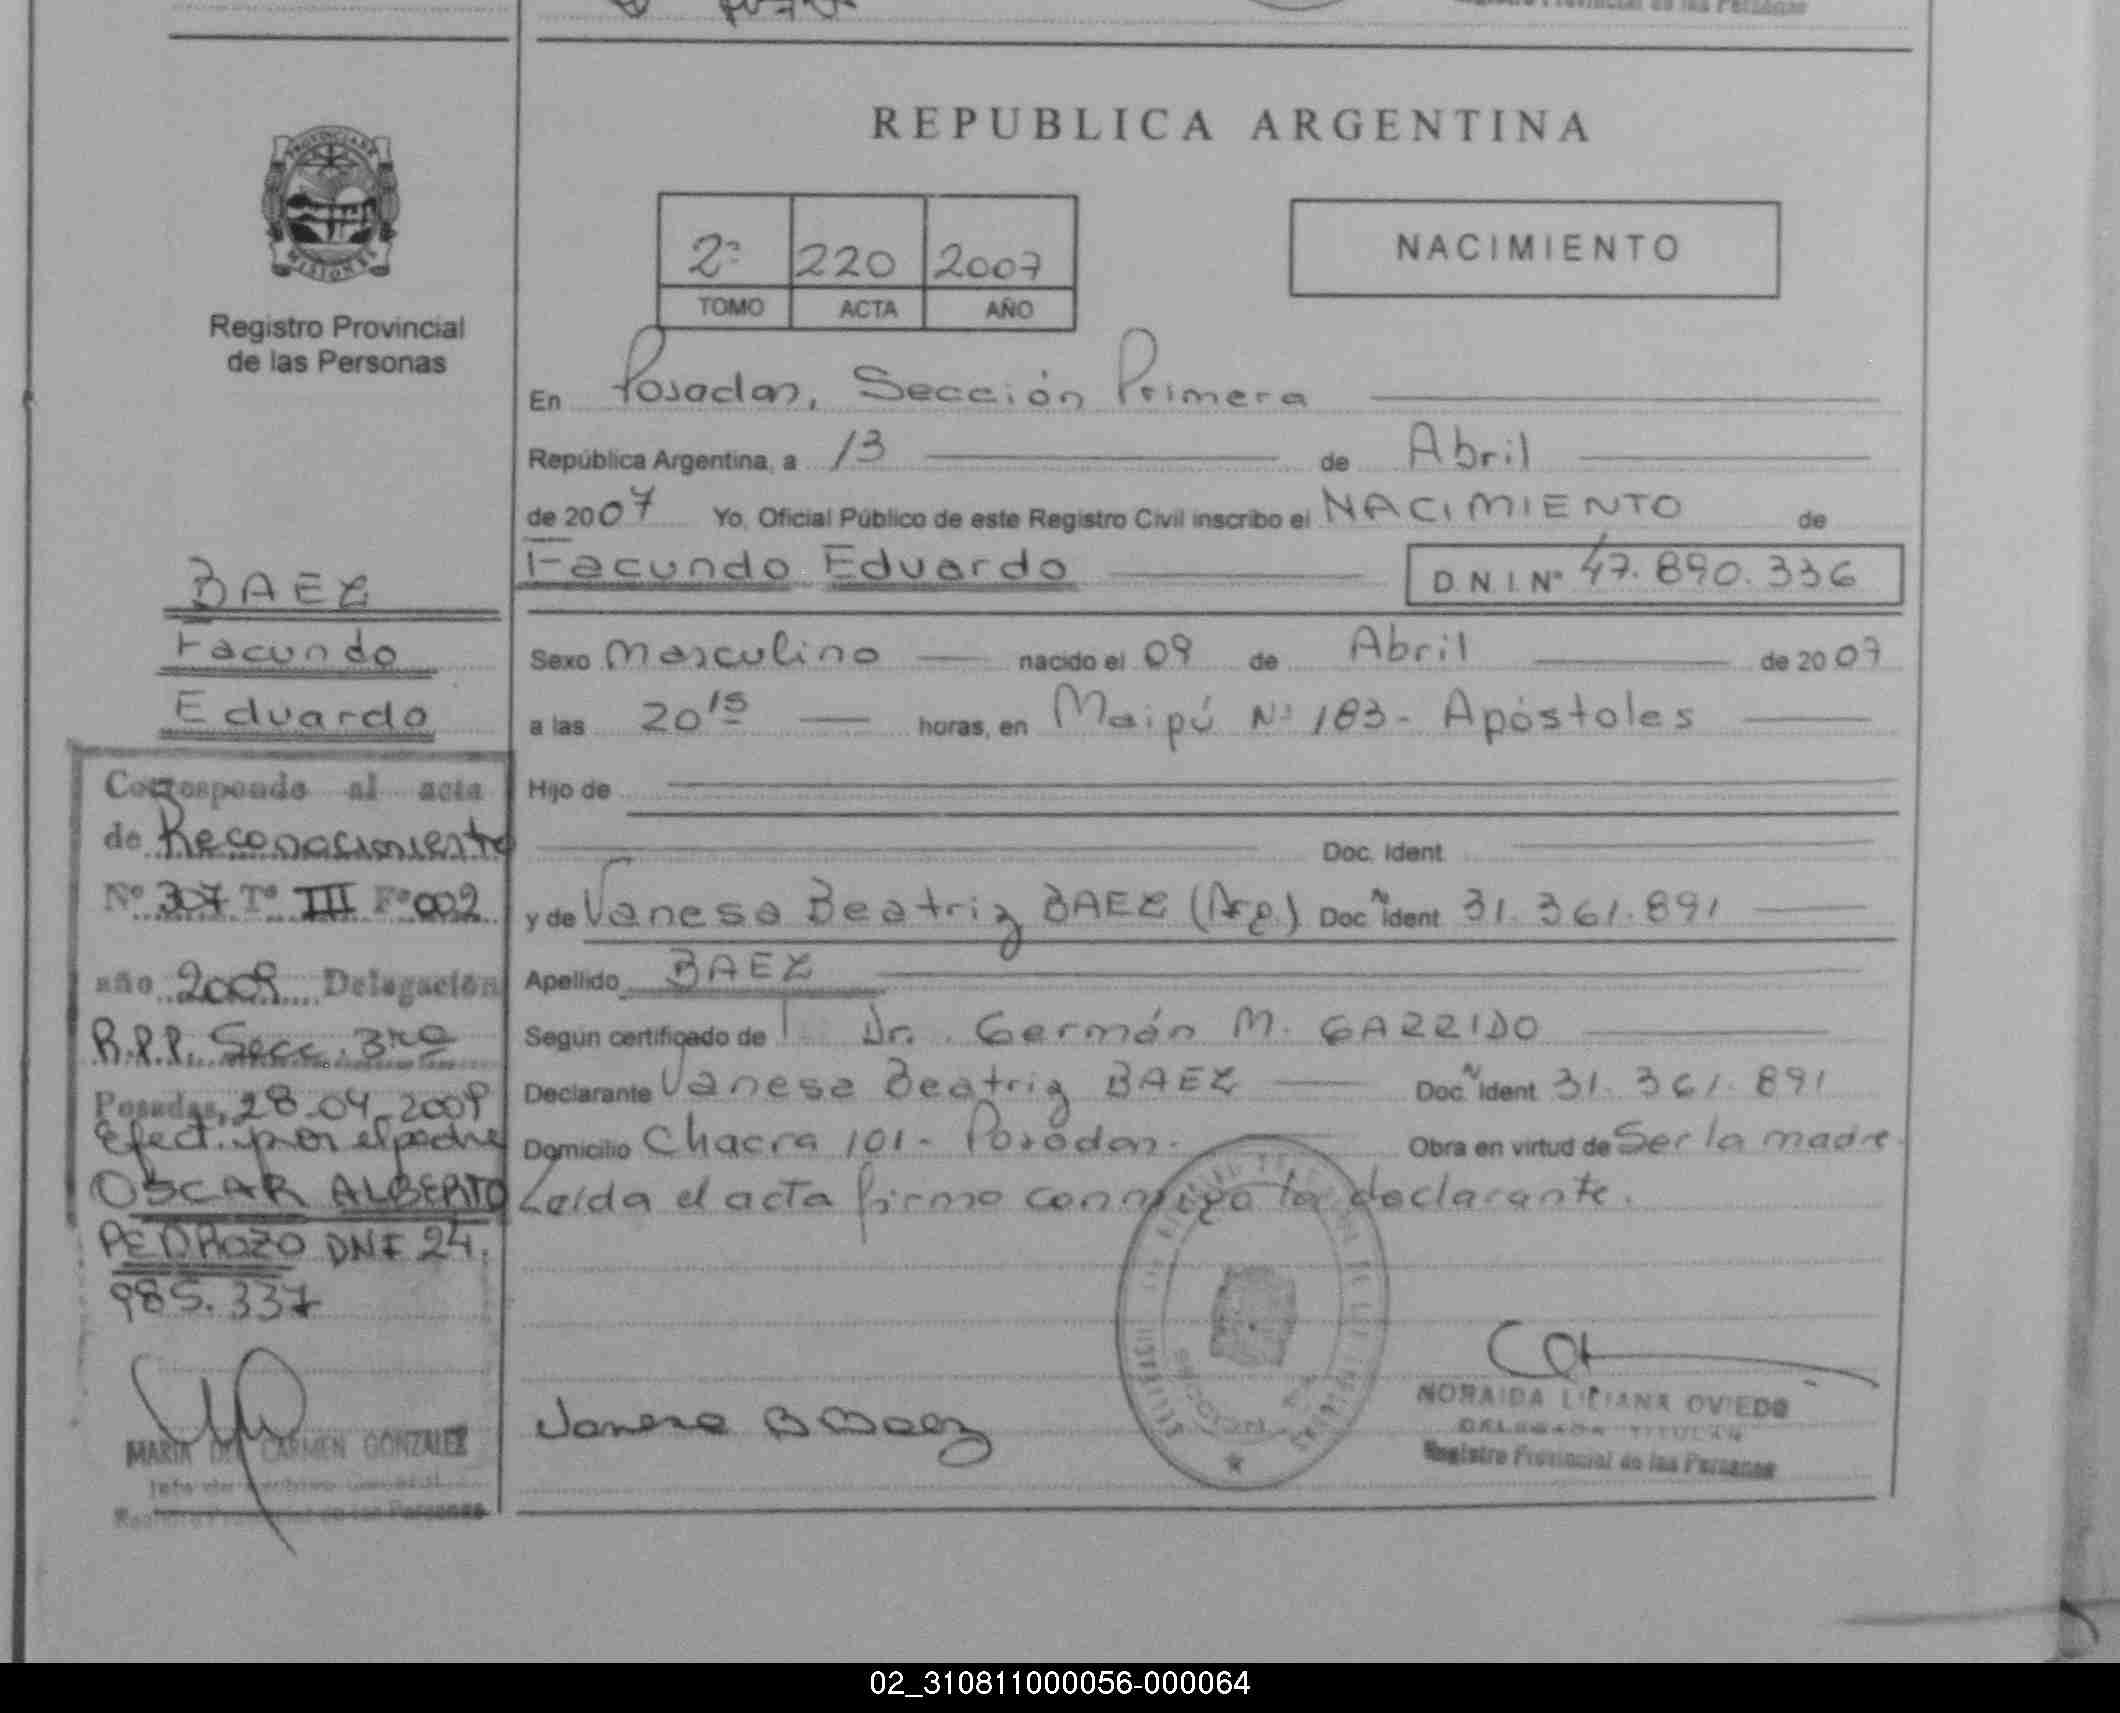 REPUBLICA ARGENTINA
PROVINCIA DE
MISIONES
Registro Provincial
de las Personas
2º 220 2007
TOMO ACTA AÑO
NACIMIENTO
En Posadas, Sección Primera
República Argentina, a 13 de Abril
de 2007 Yo, Oficial Público de este Registro Civil inscribo el NACIMIENTO de
Facundo Eduardo D.N.I.Nº 47.890.336
Sexo Masculino nacido el 09 de Abril de 2007
a las 20 15 horas, en Maipú Nº 183 - Apóstoles
Hijo de
Doc. Ident.
y de Vanesa Beatriz BAEZ (Arg.) Doc. Ident. 31.361.891
Apellido BAEZ
Según certificado de Dr. Germán M. GARRIDO
Declarante Vanesa Beatriz BAEZ Doc. Ident. 31.361.891
Domicilio Chacra 101 - Posadas. Obra en virtud de Ser la madre.
Leída el acta firma conmigo la declarante.
BAEZ
Facundo
Eduardo
Corresponde al acta
de Reconocimiento
Nº 307 Tº III Fº 002
año 2009 Delegación
R.P.P. Secc. 3ra
Posadas, 28-04-2009
Efect. por el padre
OSCAR ALBERTO
PEDROZO DNI 24.
985.337
MARIA DEL CARMEN GONZALEZ
Jefe de Archivo General
Registro Provincial de las Personas
Vanesa B Baez
NORAIDA LILIANA OVIEDO
DELEGADA TITULAR
Registro Provincial de las Personas
02_310811000056-000064